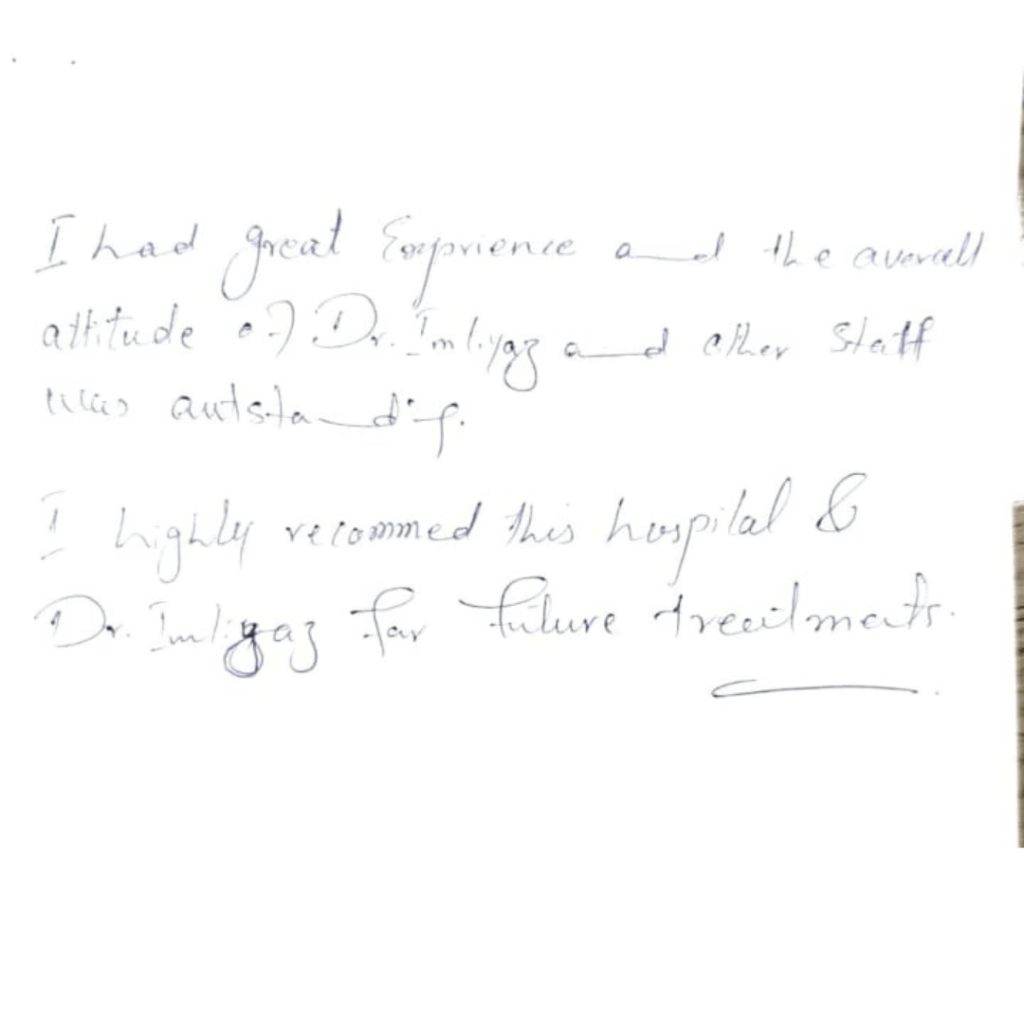 I had great Exprience and the overall
attitude of Dr. Imtiyaz and other Staff
was outstanding.
I highly recommed this hospital &
Dr. Imtiyaz for future treatments.